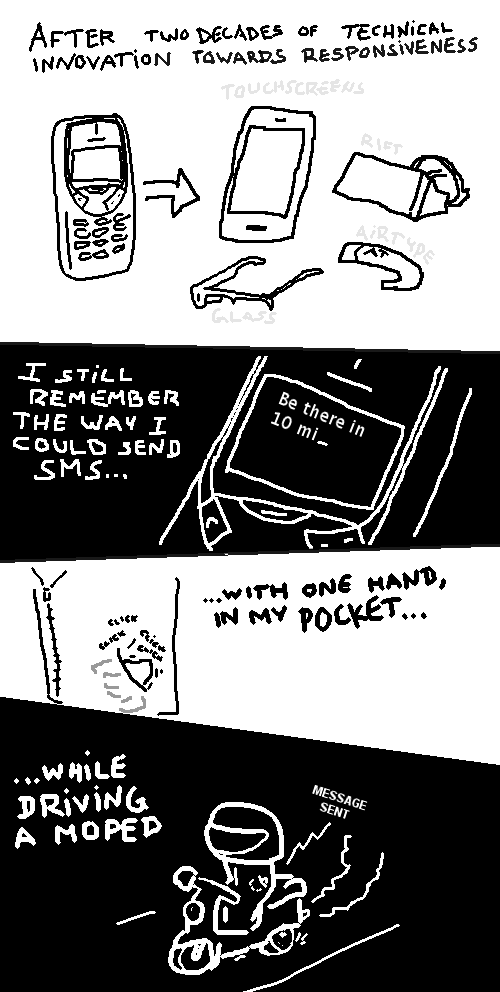 AFTER TWO DECADES OF TECHNICAL
INNOVATION TOWARDS RESPONSIVENESS
TOUCHSCREENS
RIFT
AIRTYPE
AT
GLASS
I STILL
REMEMBER
THE WAY I
COULD SEND
SMS...
Be there in
10 mi_
...WITH ONE HAND,
IN MY POCKET...
CLICK
CLICK
CLICK
CLICK
...WHILE
DRIVING
A MOPED
MESSAGE
SENT